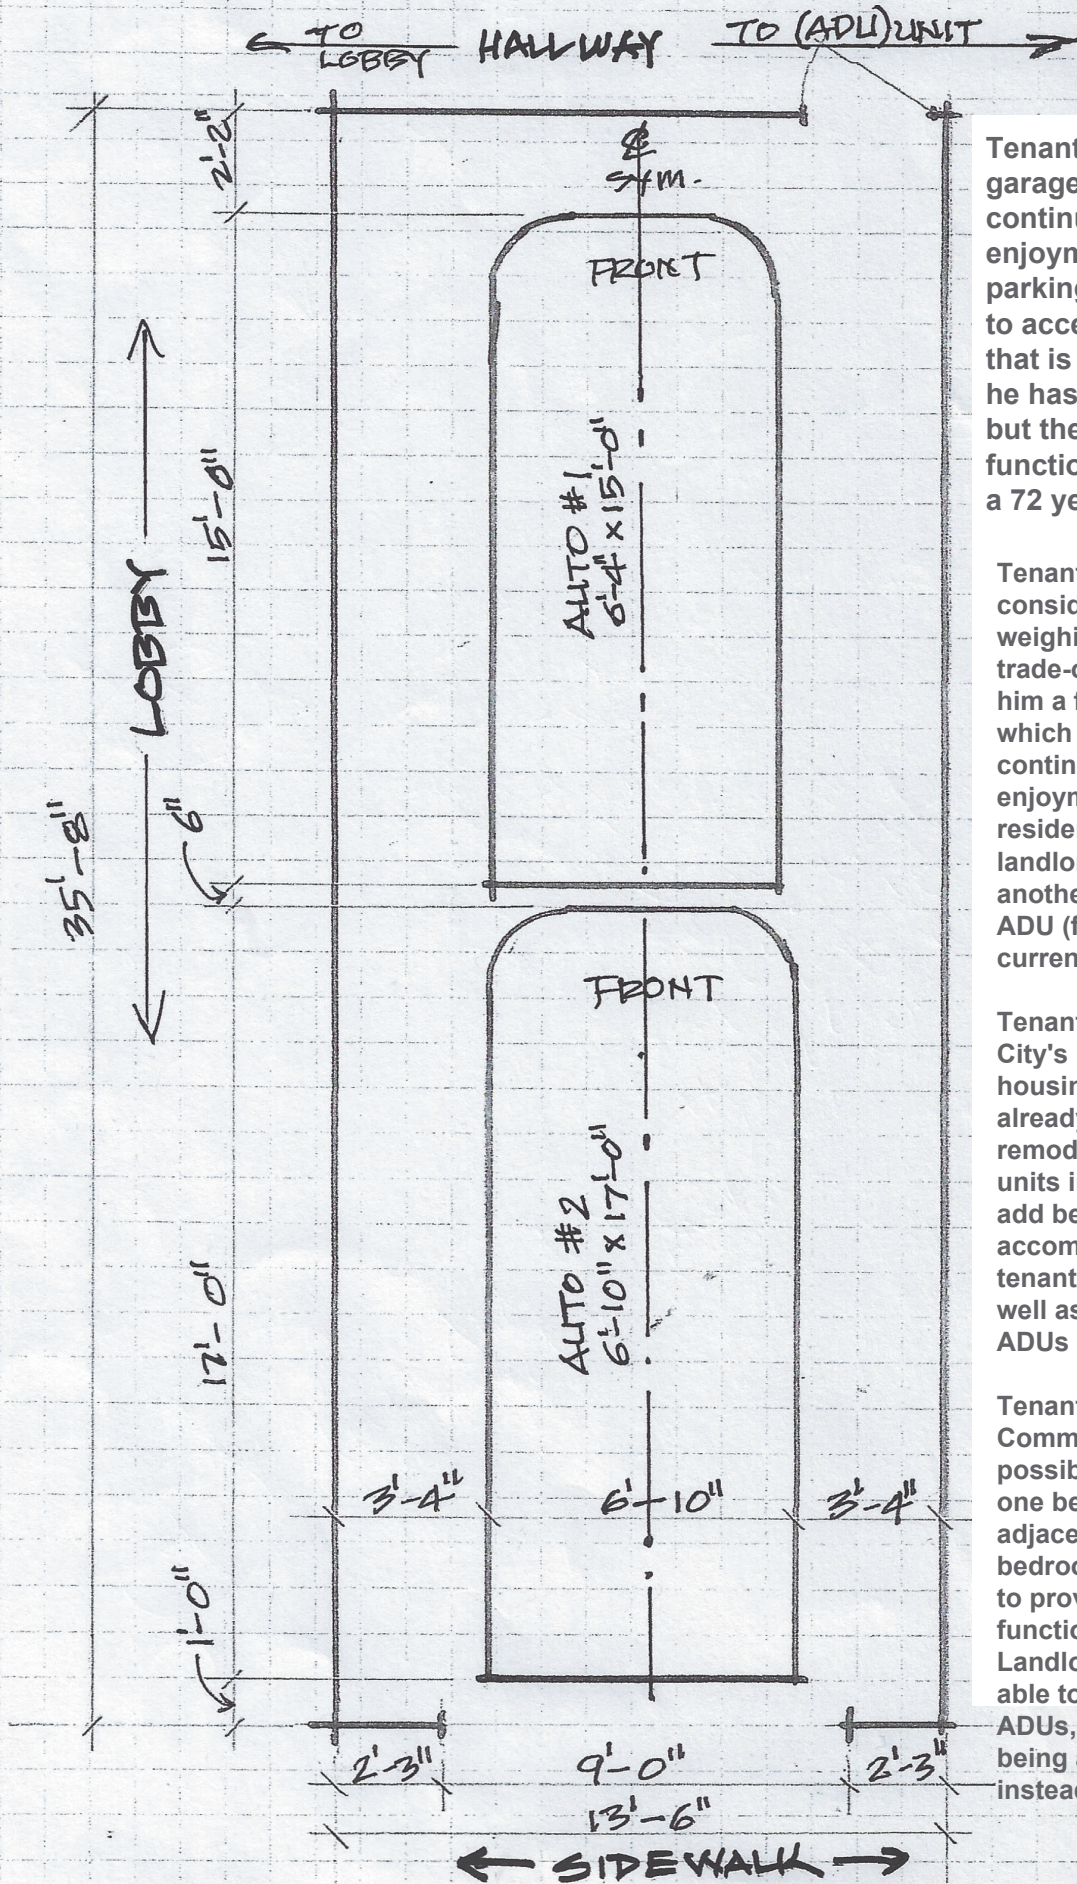 ← TO LOBBY HALLWAY TO (ADU) UNIT →
2'-2"
℄
SYM.
FRONT
AUTO #1
6'-4" x 15'-0"
15'-0"
LOBBY
35'-8"
6"
FRONT
AUTO #2
6'-10" x 17'-0"
17'-0"
3'-4" 6'-10" 3'-4"
1'-0"
2'-3" 9'-0" 2'-3"
13'-6"
← SIDEWALK →
Tenant
garage
continu
enjoym
parking
to acce
that is
he has
but the
functio
a 72 ye
Tenant
consid
weighi
trade-o
him a f
which
contin
enjoym
reside
landlo
anothe
ADU (f
curren
Tenant
City's
housin
already
remod
units i
add be
accom
tenant
well as
ADUs
Tenant
Comm
possib
one be
adjace
bedroo
to prov
functio
Landlo
able to
ADUs,
being
instead